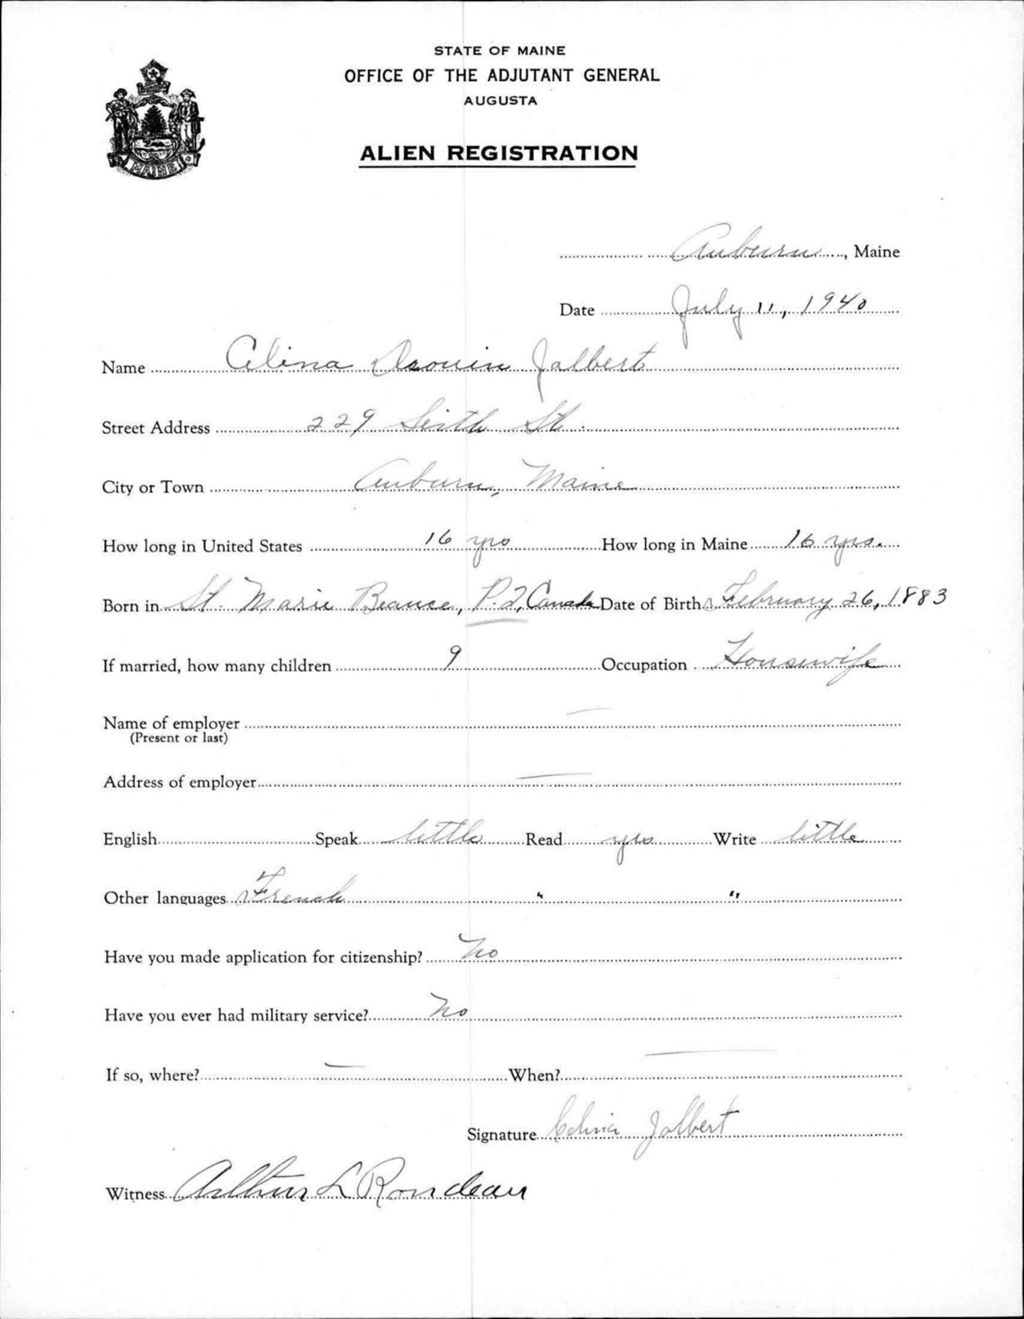 STATE OF MAINE
OFFICE OF THE ADJUTANT GENERAL
AUGUSTA
ALIEN REGISTRATION
MAINE
Auburn, Maine
Date July 11, 1940
Name Celina Drouin Jalbert
Street Address 229 Sixth St.
City or Town Auburn, Maine
How long in United States 16 yrs How long in Maine 16 yrs.
Born in St. Marie Beauce, P.Q, Canada Date of Birth February 26, 1883
If married, how many children 9 Occupation Housewife
Name of employer —
(Present or last)
Address of employer —
English Speak little Read yes Write little
Other languages French " "
Have you made application for citizenship? No
Have you ever had military service? No
If so, where? — When? —
Signature Celina Jalbert
Witness Arthur L Rondeau